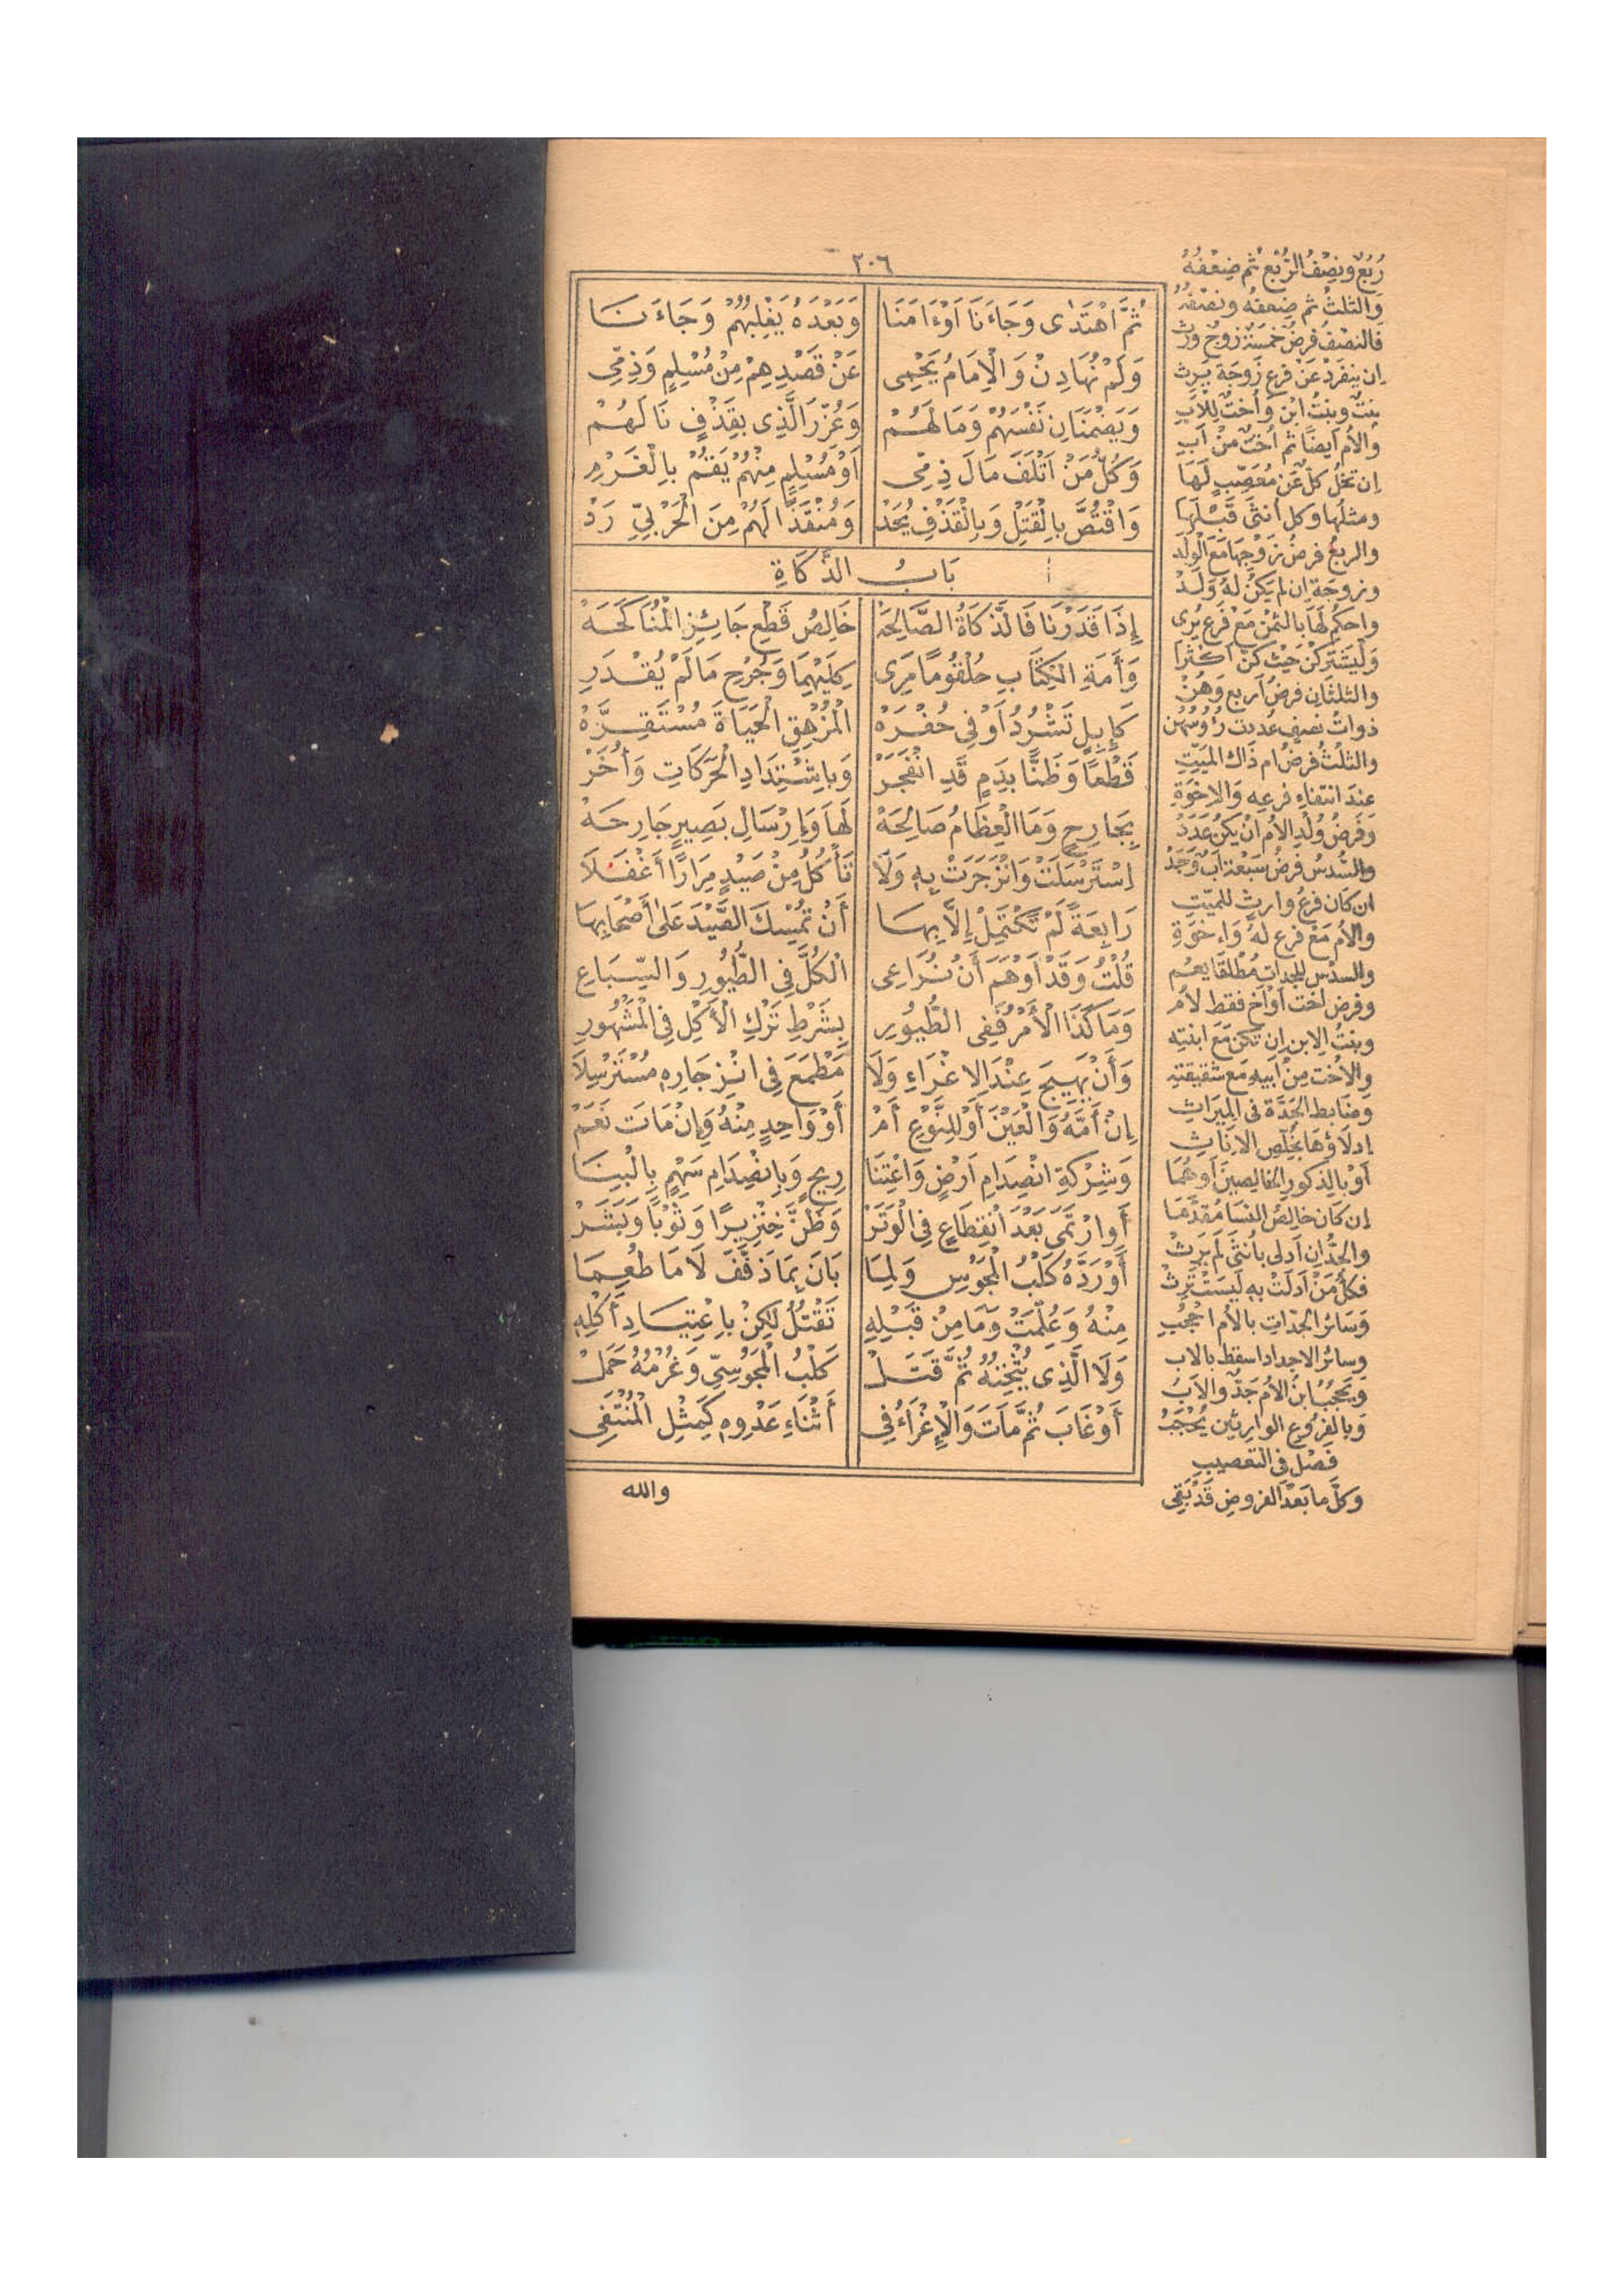 ٢٠٦
ثُمَّ اهْتَدٰى وَجَاءَنَا اَوْءَامَنَا وَبَعْدَهُ يَغْلِبُهُمْ وَجَاءَنَا
وَلَمْ نُهَادِنْ وَالْاِمَامُ يَحْمِى عَنْ قَصْدِهِمْ مِنْ مُسْلِمٍ وَذِمِّى
وَيَضْمَنَانِ نَفْسَهُمْ وَمَالَهُمْ وَعُزِّرَ الَّذِى بِقَذْفٍ نَالَهُمْ
وَكُلُّ مَنْ اَتْلَفَ مَالَ ذِمِّى اَوْمُسْلِمٍ مِنْهُمْ يَقُمْ بِالْغَرْمِ
وَاقْتُصَّ بِالْقَتْلِ وَبِالْقَذْفِ يُحَدْ وَمُنْقَذًا لَهُمْ مِنَ الْحَرْبِيِّ رَدْ
بَابُ الذَّكَاةِ
إِذَا قَدَرْنَا فَالذَّكَاةُ الصَّالِحَهْ خَالِصُ قَطْعِ جَائِزِ الْمُنَاكَحَهْ
وَأَمَةِ الْكِتَابِ حُلْقُومًا مَرِى كِلَيْهِمَا وَجُرْحِ مَا لَمْ يُقْدَرِ
كَإِبِلٍ تَشْرُدُ أَوْ فِى حُفْرَهْ الْمُزْهِقِ الْحَيَاةَ مُسْتَقِرَّهْ
قَطْعًا وَظَنًّا بِدَمٍ قَدِ انْفَجَرْ وَبِاشْتِدَادِ الْحَرَكَاتِ وَأُخَرْ
بِجَارِحٍ وَمَا الْعِظَامُ صَالِحَهْ لَهَا وَبِإِرْسَالِ بَصِيرٍ جَارِحَهْ
اِسْتَرْسَلَتْ وَانْزَجَرَتْ بِهِ وَلَا تَأْكُلُ مِنْ صَيْدٍ مِرَارًا أَغْفَلَا
رَابِعَةً لَمْ تَكْتَمِلْ إِلَّا بِهَا أَنْ تُمْسِكَ الصَّيْدَ عَلٰى أَصْحَابِهَا
قُلْتُ وَقَدْ اَوْهَمَ أَنْ نُرَاعِى الْكُلَّ فِى الطُّيُورِ وَالسِّبَاعِ
وَمَا كَذَا الْأَمْرُ فَفِى الطُّيُورِ بِشَرْطِ تَرْكِ الْأَكْلِ فِى الْمَشْهُورِ
وَأَنْ يَهِيجَ عِنْدَ الْإِغْرَاءِ وَلَا مَطْمَعَ فِى انْزِجَارِهِ مُسْتَرْسِلَا
إِنْ أَمَّهُ وَالْعَيْنَ أَوْ لِلنَّوْعِ أَمْ أَوْ وَاحِدٍ مِنْهُ وَإِنْ مَاتَ نَعَمْ
وَشِرْكَةِ انْصِدَامِ اَرْضٍ وَاعْتِنَا رِيحٍ وَبِانْصِدَامِ سَهْمٍ بِالْبِنَا
أَوِ ارْتَمَى بَعْدَ انْقِطَاعٍ فِى الْوَتَرْ وَظَنَّ خِنْزِيرًا وَثَوْبًا وَبَشَرْ
أَوْ رَدَّهُ كَلْبُ الْمَجُوسِ وَلِمَا بَانَ بِمَا ذَفَّفَ لَا مَا طَعِمَا
مِنْهُ وَعُلِّمَتْ وَمَا مِنْ قَبْلِهِ تَقْتُلُ لٰكِنْ بِاعْتِيَادِ أَكْلِهِ
وَلَا الَّذِى يُثْخِنُهُ ثُمَّ قَتَلْ كَلْبُ الْمَجُوسِيِّ وَغُرْمُهُ حَمَلْ
أَوْ غَابَ ثُمَّ مَاتَ وَالْإِغْرَاءُ فِى أَثْنَاءِ عَدْوِهِ كَمِثْلِ الْمُنْتَفِى
والله
رُبُعٌ وَنِصْفُ الرُّبْعِ ثُمَّ ضِعْفُهُ
وَالثلثُ ثم ضِعفهُ ونِصْفهُ
فالنصْفُ فرضُ خمسَةٍ زوجٌ وَرِثْ
إن ينفردْ عَنْ فَرعِ زوجَةٍ يَرِث
بنتٌ وبنتُ ابنٍ وأختٌ لِلأبِ
والأم أيضاً ثم أختٌ مِنْ أبِ
إن تخلُ كلٌّ عَنْ مُعَصِّبٍ لَهَا
ومثلُها وكل أنثى قَبْلَهَا
والربعُ فرضُ زَوجِهَا مَعَ الْوَلَدْ
وزوجَةٍ إن لم يَكنْ لهُ وَلَدْ
واحكم لَهَا بالثمْنِ مَعَ فَرعٍ يُرى
وَلْيَشْتَرِكنَ حَيْث كنّ اكثَرَا
والثلثانِ فرضُ اَربعٍ وَهُنْ
ذواتُ نصفٍ عُددت رُؤوسُهن
والثلثُ فرضُ أم ذَاك الميّتِ
عندَ انتفاءِ فرعِهِ وَالإخْوَةِ
وَفرضُ وُلْدِ الأم أنْ يَكنْ عَدَدْ
والسُّدسُ فرضُ سَبعة أبٌ وَجَدْ
إن كان فرعٌ وارثٌ للميّتِ
والأم مَعْ فَرعٍ لهُ وَإخوَةِ
والسدْس للجدات مُطْلقًا يعُم
وفرض أخت أو أخ فقط لأم
وبنتُ الابن إن تكن مَعَ ابنتِه
والأخت مِنْ أبيهِ مَع شقيقتِه
وضابط الجَدَّة فى المِيرَاثِ
إدلاؤها بخلّص الانَاثِ
أوْ بالذكورِ الخالِصينَ أوهُمَا
إن كان خالِصُ النسَا مُقدَّمَا
والجدُّ إن أدلى بأنثى لَم يَرثْ
فكلُّ مَنْ أدلَتْ بهِ لَيسَتْ تَرِثْ
وَسَائر الجدّاتِ بالأم احْجُبِ
وسائر الاجداد اسقط بالأب
وَيَحْجُبُ ابنَ الأم جَدٌّ والأبُ
وَبالفرُوعِ الوارثين يُحْجَبُ
فصْل فى التعصيب
وكلّ ما بَعْدَ الفروضِ قَدْ بَقِى